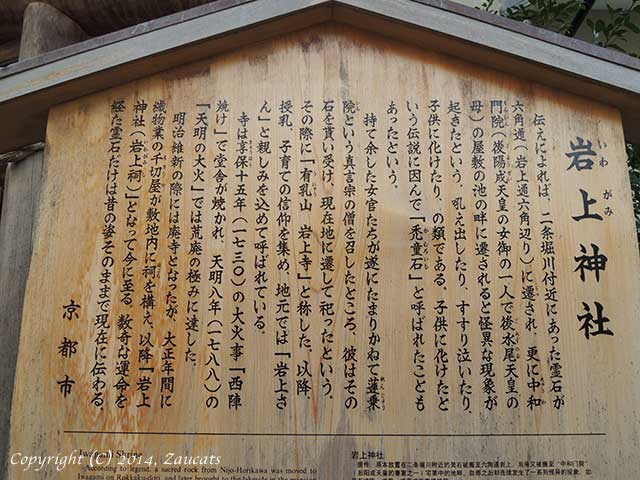 岩上神社
いわ がみ
伝えによれば、二条堀川付近にあった霊石が
六角通（岩上通六角辺り）に遷され、更に中和
門院（後陽成天皇の女御の一人で後水尾天皇の
母）の屋敷の池の畔に遷されると怪異な現象が
起きたという。吼え出したり、すすり泣いたり、
子供に化けたり、の類である。子供に化けたと
いう伝説に因んで「禿童石」と呼ばれたことも
かむろいし
あったという。
持て余した女官たちが遂にたまりかねて蓮乗
院という真言宗の僧を召したところ、彼はその
石を貰い受け、現在地に遷して祀ったという。
その際に「有乳山 岩上寺」と称した。以降、
授乳、子育ての信仰を集め、地元では「岩上さ
ん」と親しみを込めて呼ばれている。
寺は享保十五年（一七三〇）の大火事「西陣
焼け」で堂舎が焼かれ、天明八年（一七八八）の
「天明の大火」では荒廃の極みに達した。
明治維新の際には廃寺となったが、大正年間に
織物業の千切屋が敷地内に祠を構え、以降「岩上
神社（岩上祠）」となって今に至る。数奇な運命を
経た霊石だけは昔の姿そのままで現在に伝わる。
京都市
Iwagami Shrine
According to legend, a sacred rock from Nijo-Horikawa was moved to
岩上神社
Copyright (C) 2014, Zaucats